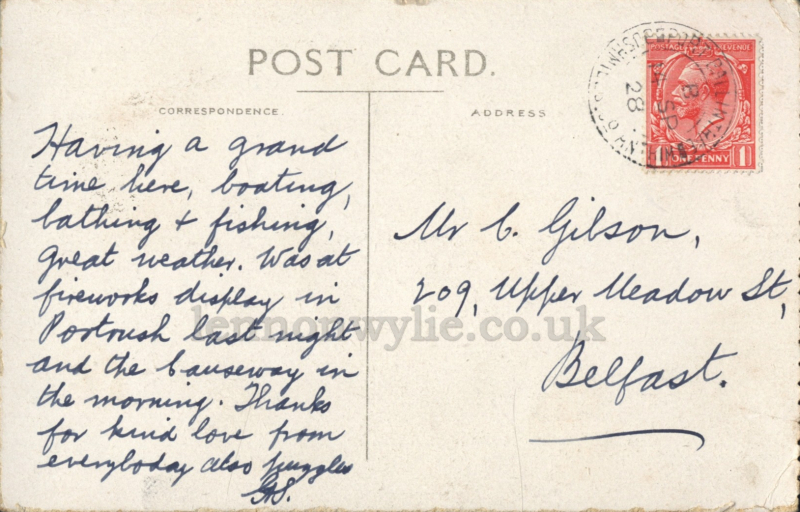 POST CARD.
CORRESPONDENCE.
ADDRESS
POSTAGE REVENUE
ONE PENNY
1 1
SP
28
Having a grand
time here, boating,
bathing + fishing,
great weather. Was at
fireworks display in
Portrush last night
and the Causeway in
the morning. Thanks
for kind love from
everyboday also
Mr C. Gilson,
209, Upper Meadow St,
Belfast.
lennonwylie.co.uk